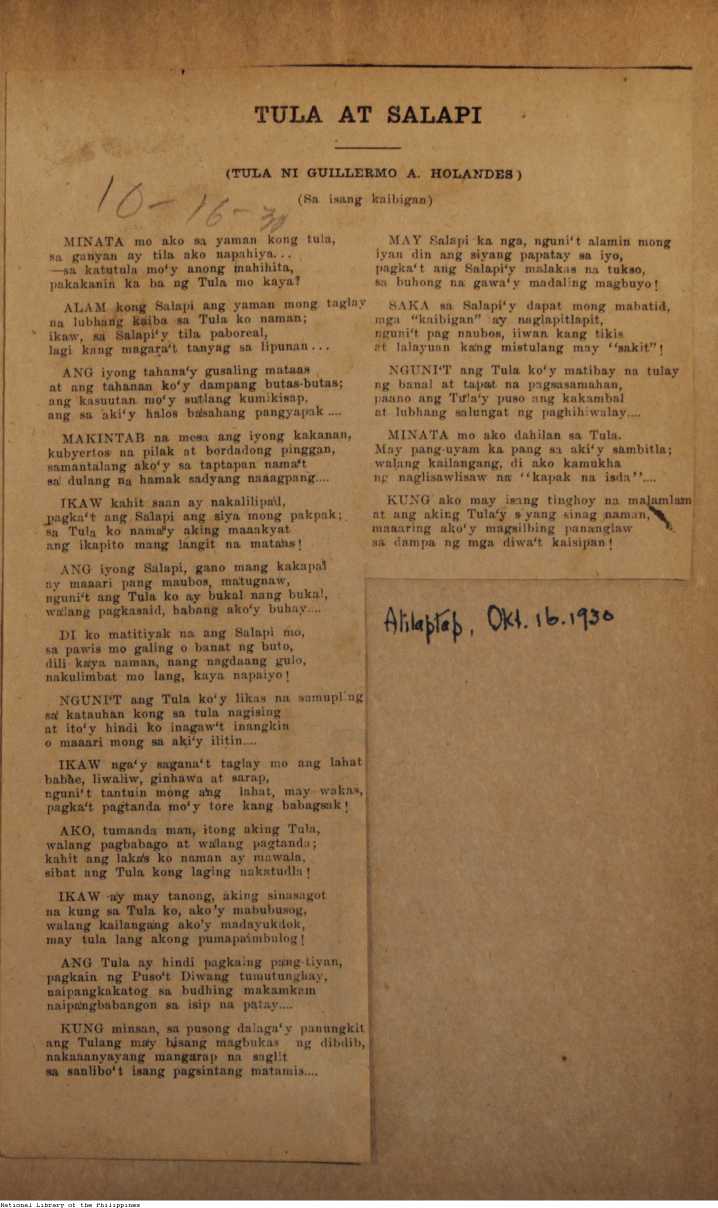 TULA AT SALAPI
(TULA NI GUILLERMO A. HOLANDES)
(Sa isang kaibigan)
10-16-30
MINATA mo ako sa yaman kong tula,
sa ganyan ay tila ako napahiya...
—sa katutula mo'y anong mahihita,
pakakanin ka ba ng Tula mo kaya?
ALAM kong Salapi ang yaman mong taglay
na lubhang kaiba sa Tula ko naman;
ikaw, sa Salapi'y tila paboreal,
lagi kang magara't tanyag sa lipunan...
ANG iyong tahana'y gusaling mataas
at ang tahanan ko'y dampang butas-butas;
ang kasuutan mo'y sutlang kumikisap,
ang sa aki'y halos basahang pangyapak....
MAKINTAB na mesa ang iyong kakanan,
kubyertos na pilak at bordadong pinggan,
samantalang ako'y sa taptapan nama't
sa dulang na hamak sadyang naaagpang....
IKAW kahit saan ay nakalilipad,
pagka't ang Salapi ang siya mong pakpak;
sa Tula ko nama'y aking maaakyat
ang ikapito mang langit na mataas!
ANG iyong Salapi, gano mang kakapal
ay maaari pang maubos, matugnaw,
nguni't ang Tula ko ay bukal nang bukal,
walang pagkasaid, habang ako'y buhay....
DI ko matitiyak na ang Salapi mo,
sa pawis mo galing o banat ng buto,
dili kaya naman, nang nagdaang gulo,
nakulimbat mo lang, kaya napaiyo!
NGUNI'T ang Tula ko'y likas na sumupling
sa katauhan kong sa tula nagising
at ito'y hindi ko inagaw't inangkin
o maaari mong sa aki'y ilitin....
IKAW nga'y sagana't taglay mo ang lahat
babae, liwaliw, ginhawa at sarap,
nguni't tantuin mong ang lahat, may wakas,
pagka't pagtanda mo'y tore kang babagsak!
AKO, tumanda man, itong aking Tula,
walang pagbabago at walang pagtanda;
kahit ang lakas ko naman ay mawala,
sibat ang Tula kong laging nakatudla!
IKAW ay may tanong, aking sinasagot
na kung sa Tula ko, ako'y mabubusog,
walang kailangang ako'y madayukdok,
may tula lang akong pumapaimbulog!
ANG Tula ay hindi pagkaing pang-tiyan,
pagkain ng Puso't Diwang tumutunghay,
naipangkakatog sa budhing makamkam
naipangbabangon sa isip na patay....
KUNG minsan, sa pusong dalaga'y panungkit
ang Tulang may bisang magbukas ng dibdib,
nakaaanyayang mangarap na saglit
sa sanlibo't isang pagsintang matamis....
MAY Salapi ka nga, nguni't alamin mong
iyan din ang siyang papatay sa iyo,
pagka't ang Salapi'y malakas na tukso,
sa buhong na gawa'y madaling magbuyo!
SAKA sa Salapi'y dapat mong mabatid,
mga "kaibigan" ay naglapitlapit,
nguni't pag naubos, iiwan kang tikis
at lalayuan kang mistulang may "sakit"!
NGUNI'T ang Tula ko'y matibay na tulay
ng banal at tapat na pagsasamahan,
paano ang Tula'y puso ang kakambal
at lubhang salungat ng paghihiwalay....
MINATA mo ako dahilan sa Tula.
May pang-uyam ka pang sa aki'y sambitla;
walang kailangang, di ako kamukha
ng naglisawlisaw na "kapak na isda"....
KUNG ako may isang tinghoy na malamlam
at ang aking Tula'y syang sinag naman,
maaaring ako'y magsilbing pananglaw
sa dampa ng mga diwa't kaisipan!
Aliaptap, Okt. 16. 1930
National Library of the Philippines